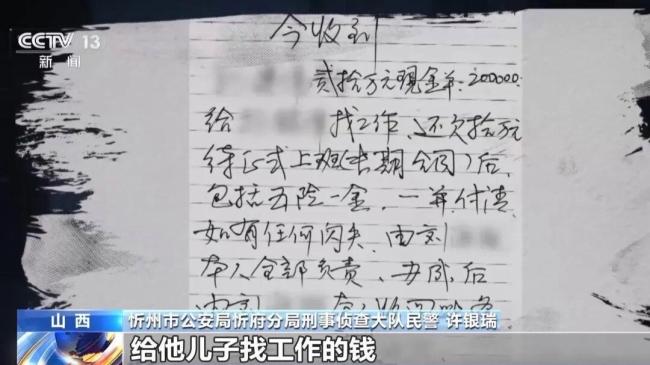 CCTV 13
新闻
今收到
贰拾万元现金¥:200000.
给 找工作,还欠拾万元
待正式上班(长期合同)后,
包括五险一金,一并付清,
如有任何闪失,由刘
本人全部负责,办成后
由刘
山西
忻州市公安局忻府分局刑事侦查大队民警 许银瑞
给他儿子找工作的钱